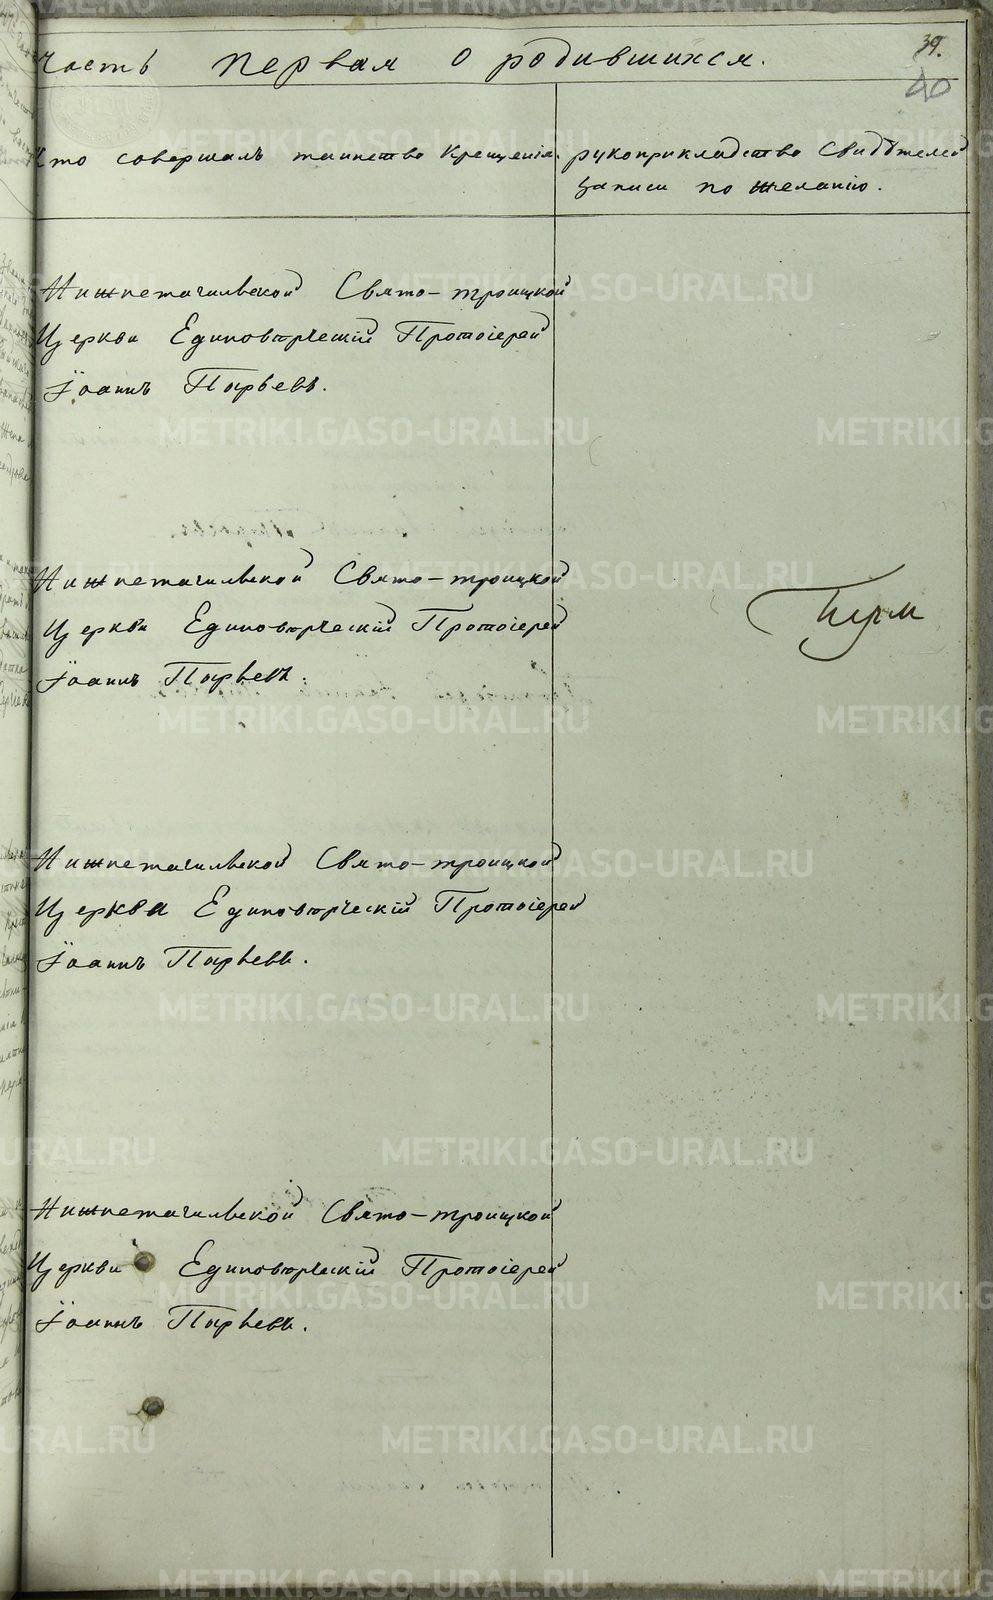 39.
Часть первая о родившихся.
40
Кто совершалъ таинство крещенія.
рукоприкладство свидѣтелей
записи по желанію.
Нижнетагильской Свято-троицкой
Церкви Единовѣрческій Протоіерей
Іоаннъ Пырьевъ.
Нижнетагильской Свято-троицкой
Церкви Единовѣрческій Протоіерей
Іоаннъ Пырьевъ.
Нижнетагильской Свято-троицкой
Церкви Единовѣрческій Протоіерей
Іоаннъ Пырьевъ.
Нижнетагильской Свято-троицкой
Церкви Единовѣрческій Протоіерей
Іоаннъ Пырьевъ.
METRIKI.GASO-URAL.RU